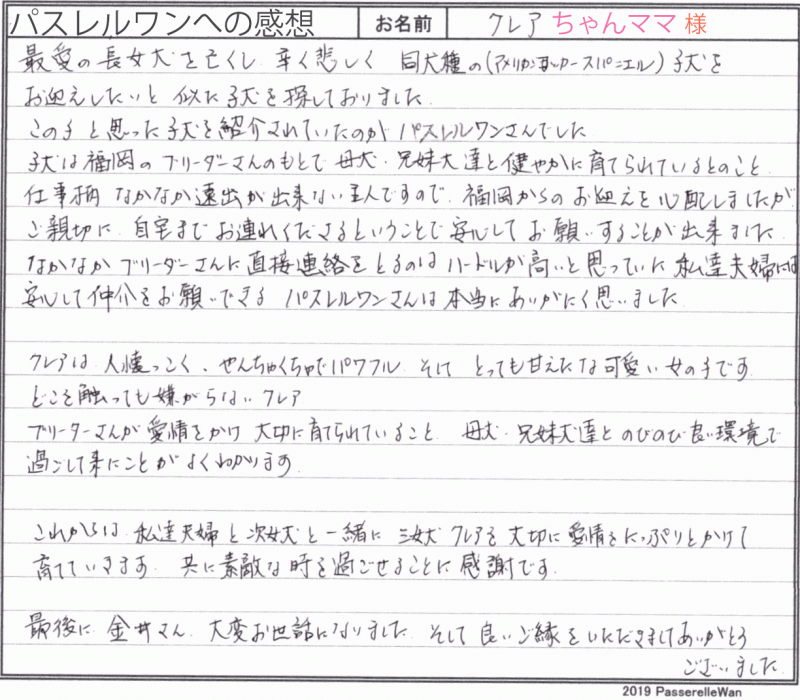 パスレルワンへの感想 お名前 クレア ちゃんママ 様
最愛の長女犬を亡くし 辛く悲しく 同犬種の(アメリカンコッカースパニエル)子犬を
お迎えしたいと 似た子犬を探しておりました
この子と思った子犬を紹介されていたのが パスレルワンさんでした
子犬は福岡のブリーダーさんのもとで 母犬・兄妹犬達と健やかに育てられているとのこと
仕事柄 なかなか遠出が出来ない主人ですので、福岡からのお迎えを心配しましたが
ご親切に 自宅までお連れくださるということで安心してお願いすることが出来ました
なかなか ブリーダーさんに直接連絡をとるのはハードルが高いと思っていた 私達夫婦には
安心して仲介をお願いできる パスレルワンさんは本当にありがたく思いました
クレアは 人懐っこく、やんちゃくちゃでパワフル そして とっても甘えたな可愛い女の子です
どこを触っても嫌がらない クレア
ブリーダーさんが愛情をかけ 大切に育てられていること 母犬・兄妹犬達とのびのび良い環境で
過ごして来たことがよくわかります
これからは 私達夫婦と次女犬と一緒に 三女犬 クレアを大切に愛情をたっぷりとかけて
育てていきます 共に素敵な時を過ごせることに感謝です
最後に 金井さん 大変お世話になりました そして良いご縁をいただきましてありがとう
ございました
2019 PasserelleWan